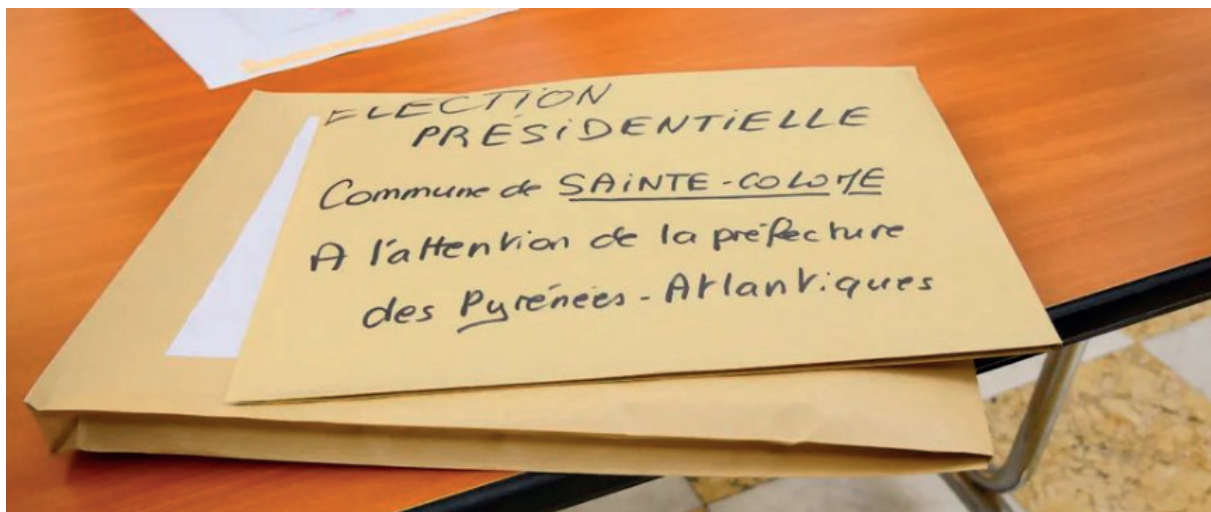 ELECTION
PRÉSIDENTIELLE
Commune de SAINTE-COLOME
A l'attention de la préfecture
des Pyrénées-Atlantiques